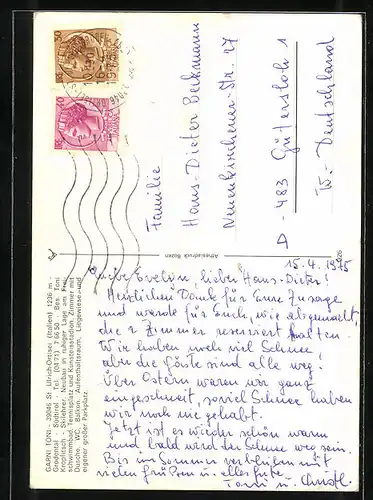 GARNI TONI - 39046 St. Ulrich-Ortisei (Italien) 1236 m -
Grödental - Südtirol - Tel. (0471) 7 66 50 - Bes. Toni
Kropfitsch - Skilehrer. Neubau in ruhiger Lage am Frei-
schwimmbad, Tennisplatz und Kunsteisstadion. Zimmer mit
Dusche, WC, Balkon, Aufenthaltsraum, Liegewiese und
eigener großer Parkplatz.
Athesiadruck Bozen
Familie
Hans-Dieter Beckmann
Neuenkirchener-Str. 27
D-483 Gütersloh 1
W.-Deutschland
15.4.1975
Liebe Evelyn, lieber Hans-Dieter!
Herzlichen Dank für Eure Zusage
und werde für Euch, wie abgemacht,
die 2 Zimmer reserviert halten.
Wir haben noch viel Schnee,
aber die Gäste sind alle weg.
Über Ostern waren wir ganz
eingeschneit, soviel Schnee haben
wir noch nie gehabt.
Jetzt ist es wieder schön warm
und bald wird der Schnee weg sein.
Bis im Sommer verbleiben mit
vielen Grüßen u. alles Gute
Toni u. Christl.